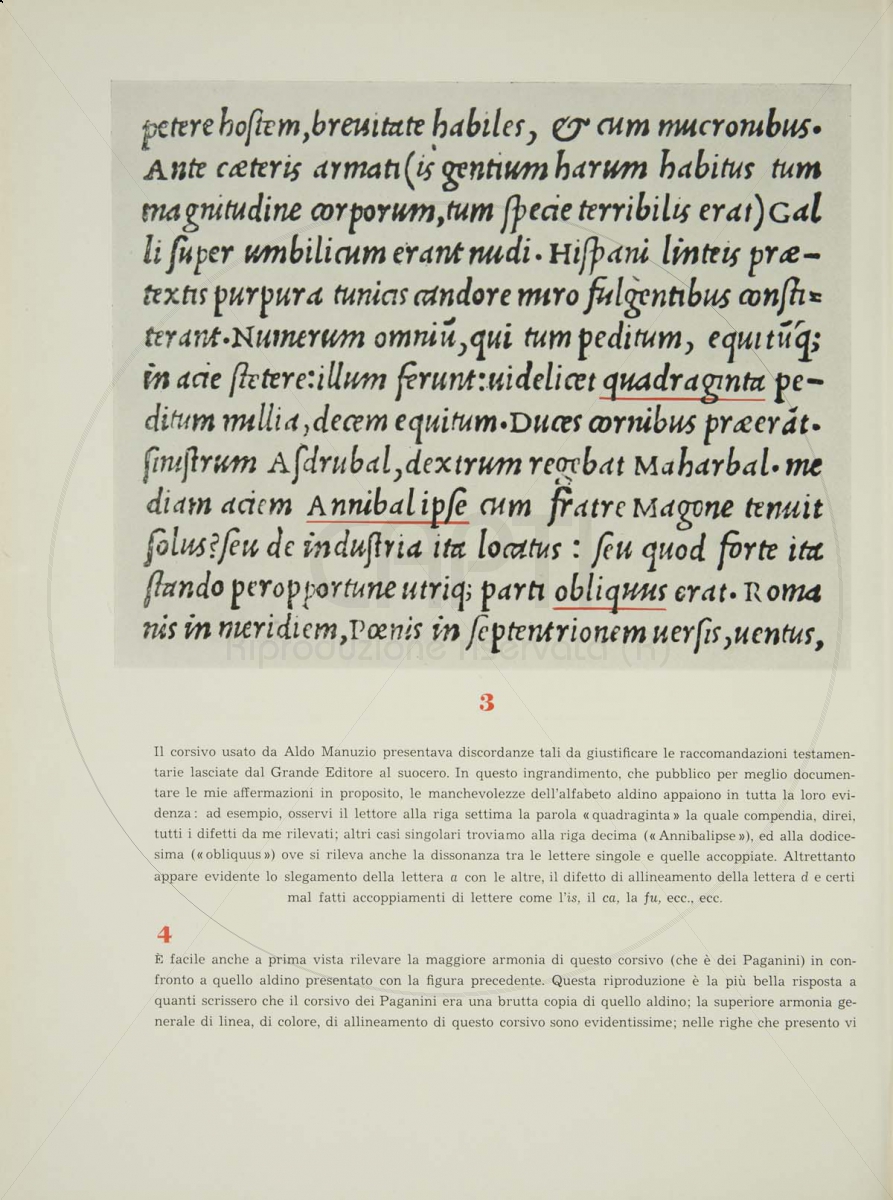 petere hoſtem,breuitate habiles, & cum mucronibus.
Ante cæteris armati(is gentium harum habitus tum
magnitudine corporum,tum ſpecie terribilis erat)Gal
li ſuper umbilicum erant nudi. Hiſpani linteis præ-
textis purpura tunicis candore miro fulgentibus conſti=
terant.Numerum omniū,qui tum peditum, equitūq;
in acie ſtetere:illum ferunt:uidelicet quadraginta pe-
ditum millia,decem equitum.Duces cornibus præerāt.
ſiniſtrum Aſdrubal,dextrum regebat Maharbal.me
diam aciem Annibal ipſe cum fratre Magone tenuit
ſolus?ſeu de induſtria ita locatus : ſeu quod forte ita
ſtando peropportune utriq; parti obliquus erat. Roma
nis in meridiem,Pœnis in ſeptentrionem uerſis,uentus,
Riproduzione riservata (R)
3
Il corsivo usato da Aldo Manuzio presentava discordanze tali da giustificare le raccomandazioni testamen-
tarie lasciate dal Grande Editore al suocero. In questo ingrandimento, che pubblico per meglio documen-
tare le mie affermazioni in proposito, le manchevolezze dell'alfabeto aldino appaiono in tutta la loro evi-
denza: ad esempio, osservi il lettore alla riga settima la parola «quadraginta» la quale compendia, direi,
tutti i difetti da me rilevati; altri casi singolari troviamo alla riga decima («Annibalipse»), ed alla dodice-
sima («obliquus») ove si rileva anche la dissonanza tra le lettere singole e quelle accoppiate. Altrettanto
appare evidente lo slegamento della lettera a con le altre, il difetto di allineamento della lettera d e certi
mal fatti accoppiamenti di lettere come l'is, il ca, la fu, ecc., ecc.
4
È facile anche a prima vista rilevare la maggiore armonia di questo corsivo (che è dei Paganini) in con-
fronto a quello aldino presentato con la figura precedente. Questa riproduzione è la più bella risposta a
quanti scrissero che il corsivo dei Paganini era una brutta copia di quello aldino; la superiore armonia ge-
nerale di linea, di colore, di allineamento di questo corsivo sono evidentissime; nelle righe che presento vi